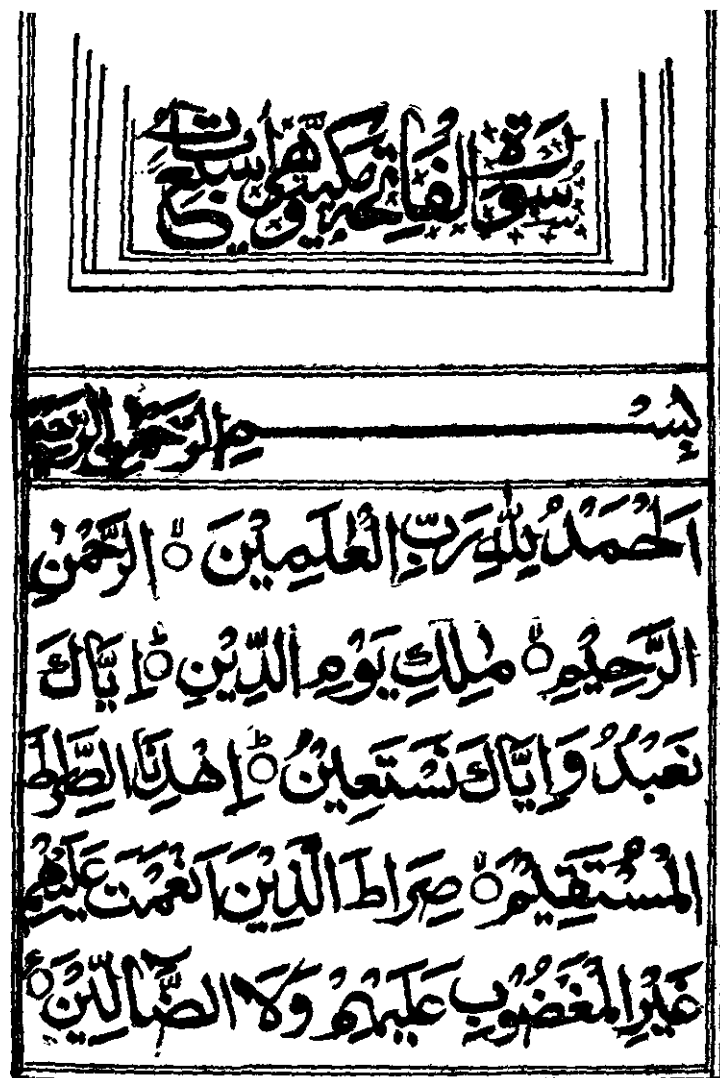 سُوْرَةُ الْفَاتِحَةِ مَكِّيَّةٌ وَّهِيَ سَبْعُ اٰيَاتٍ
بِسْمِ اللّٰهِ الرَّحْمٰنِ الرَّحِيْمِ
اَلْحَمْدُ لِلّٰهِ رَبِّ الْعٰلَمِيْنَ ۙ الرَّحْمٰنِ
الرَّحِيْمِ ۙ مٰلِكِ يَوْمِ الدِّيْنِ ؕ اِيَّاكَ
نَعْبُدُ وَاِيَّاكَ نَسْتَعِيْنُ ؕ اِهْدِنَا الصِّرَاطَ
الْمُسْتَقِيْمَ ۙ صِرَاطَ الَّذِيْنَ اَنْعَمْتَ عَلَيْهِمْ
غَيْرِ الْمَغْضُوْبِ عَلَيْهِمْ وَلَا الضَّآلِّيْنَ